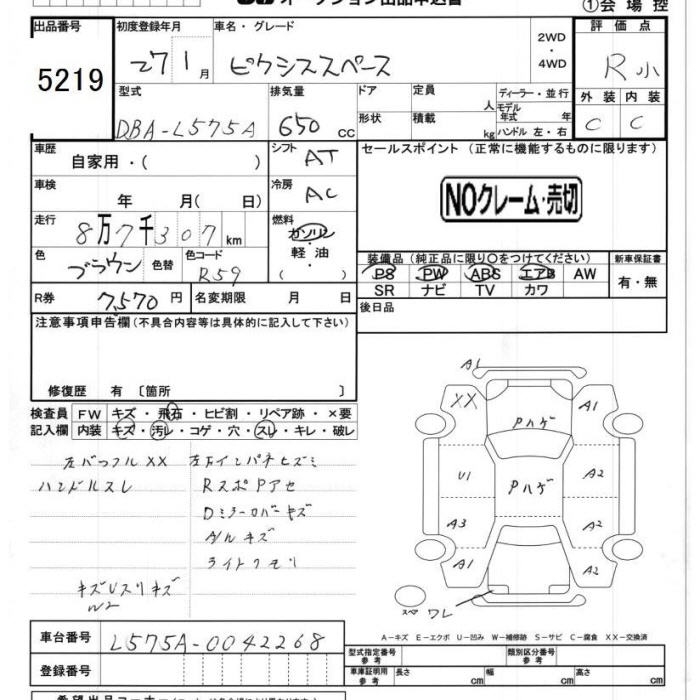 オークション出品申込書 ①会場控
出品番号 初度登録年月 車名・グレード 評価点
5219 27 1月 ピクシススペース 2WD・4WD R小
型式 排気量 ドア 定員 人 ディーラー・並行 外装 内装
DBA-L575A 650cc 形状 積載 kg モデル年式 年 ハンドル 左・右 C C
車歴 自家用・( ) シフト AT セールスポイント (正常に機能するものに限ります)
車検 年 月( 日) 冷房 AC NOクレーム・売切
走行 8万7千307km 燃料 ガソリン・軽油・( )
色 ブラウン 色替 色コード R59 装備品 (純正品に限り○をつけてください) 新車保証書
PS PW ABS エアB AW 有・無
SR ナビ TV カワ
R券 7,570円 名変期限 月 日 後日品
注意事項申告欄 (不具合内容等は具体的に記入して下さい)
修復歴 有 〔箇所 〕
検査員 FW キズ・飛石・ヒビ割・リペア跡・×要
記入欄 内装 キズ・汚レ・コゲ・穴・スレ・キレ・破レ
左バッフルXX
ハンドルスレ
キズUスリキズ
W2
左右インパネヒズミ
RスポPアセ
Dミラーロバーキズ
A/Wキズ
ライトクモリ
A1
XX Pハゲ A1
U1 Pハゲ A2
A3 A2
A1 A2
スペ ワレ
A-キズ E-エクボ U-凹み W-補修跡 S-サビ C-腐食 XX-交換済
車台番号 L575A-0042268
登録番号
型式指定番号 参考 類別区分番号 参考
車庫証明用 参考 長さ cm 幅 cm 高さ cm